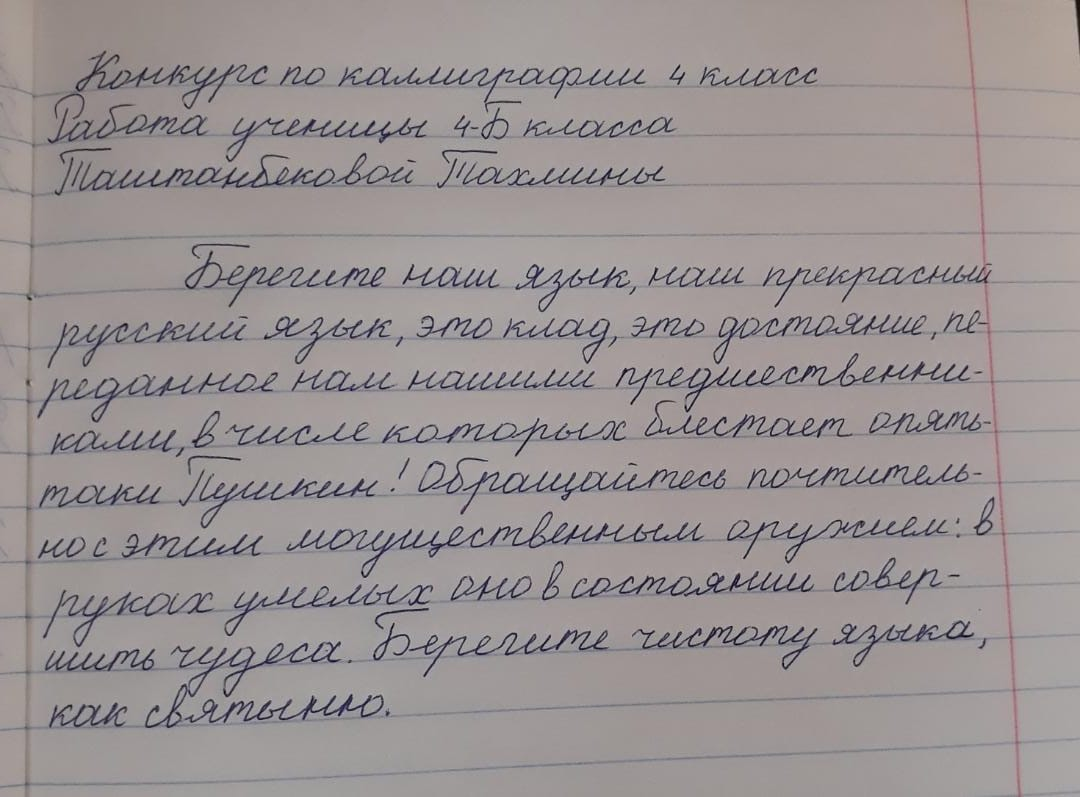 Конкурс по каллиграфии 4 класс
Работа ученицы 4-Б класса
Таштанбековой Тахмины
Берегите наш язык, наш прекрасный
русский язык, это клад, это достояние, пе-
реданное нам нашими предшественни-
ками, в числе которых блестает опять-
таки Пушкин! Обращайтесь почтитель-
но с этим могущественным оружием: в
руках умелых оно в состоянии совер-
шить чудеса. Берегите чистоту языка,
как святыню.